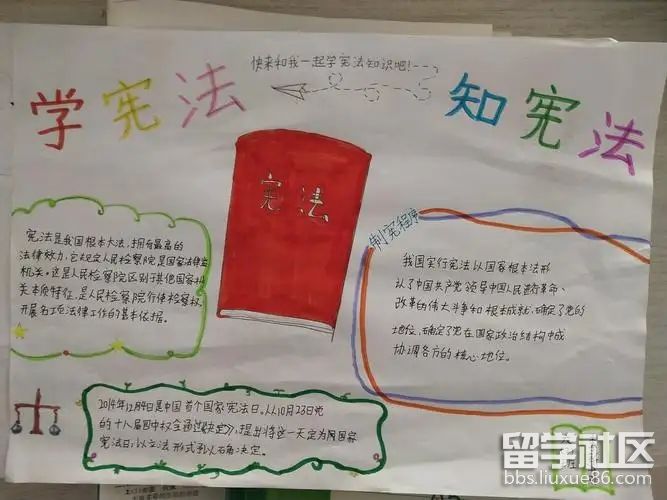 快来和我一起学宪法知识吧！
学宪法
知宪法
宪法
宪法是我国根本大法，拥有最高的
法律效力，它规定人民检察院是国家法律监
机关。这是人民检察院区别于其他国家机
关本质特征，是人民检察院行使检察权，
开展各项法律工作的基本依据。
制宪程序
我国实行宪法以国家根本法形
认了中国共产党领导中国人民进行革命、
改革的伟大斗争和根本成就，确定了党的
地位，确定了党在国家政治结构中
协调各方的核心地位。
2014年12月4日是中国首个国家宪法日。从10月23日
的十八届四中全会通过决定》，提出将这一天定为国家
宪法日，以立法形式予以确决定。
留学社区
bbs.liuxue86.com